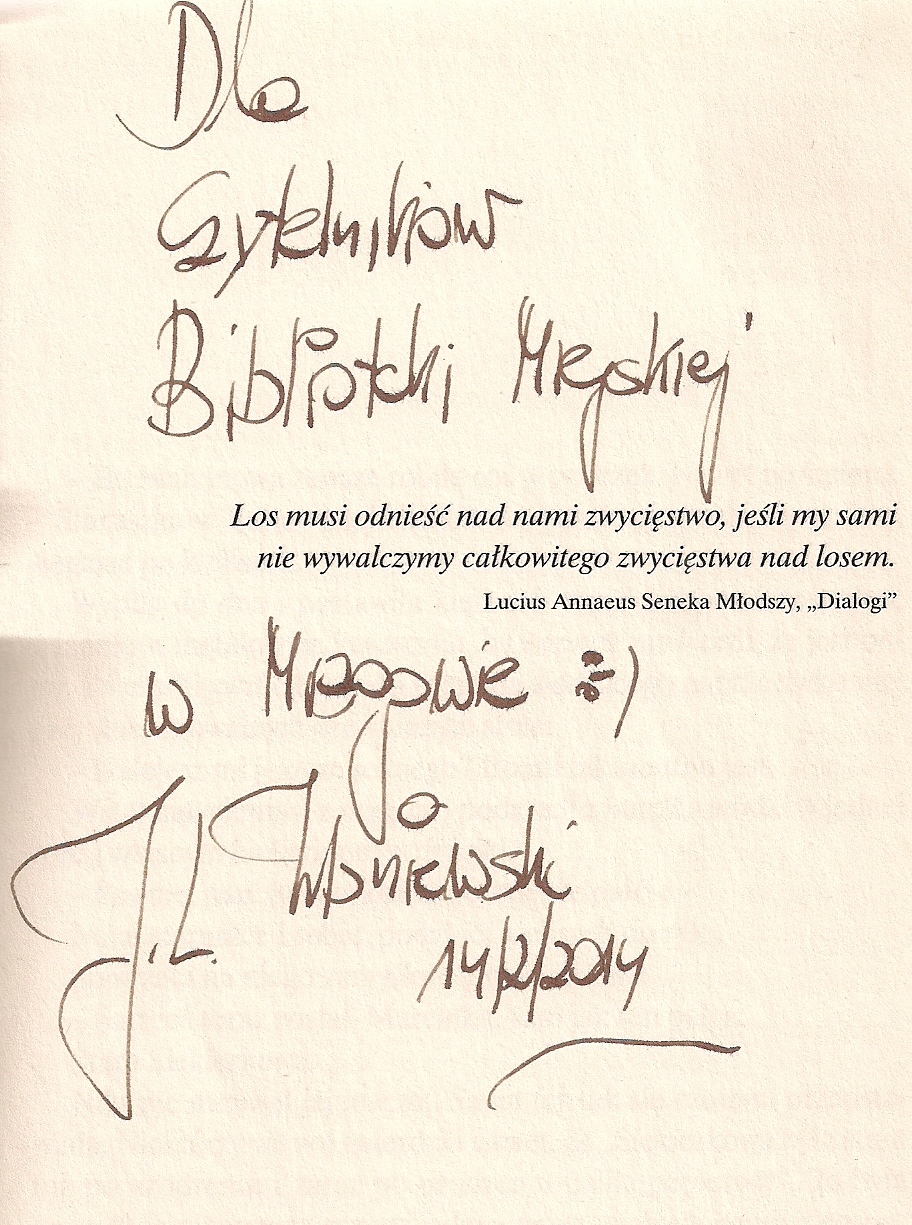 Dla
Czytelników
Biblioteki Miejskiej
Los musi odnieść nad nami zwycięstwo, jeśli my sami
nie wywalczymy całkowitego zwycięstwa nad losem.
Lucius Annaeus Seneka Młodszy, „Dialogi”
w Mrągowie :)
J.L. Wiśniewski
14/2/2014